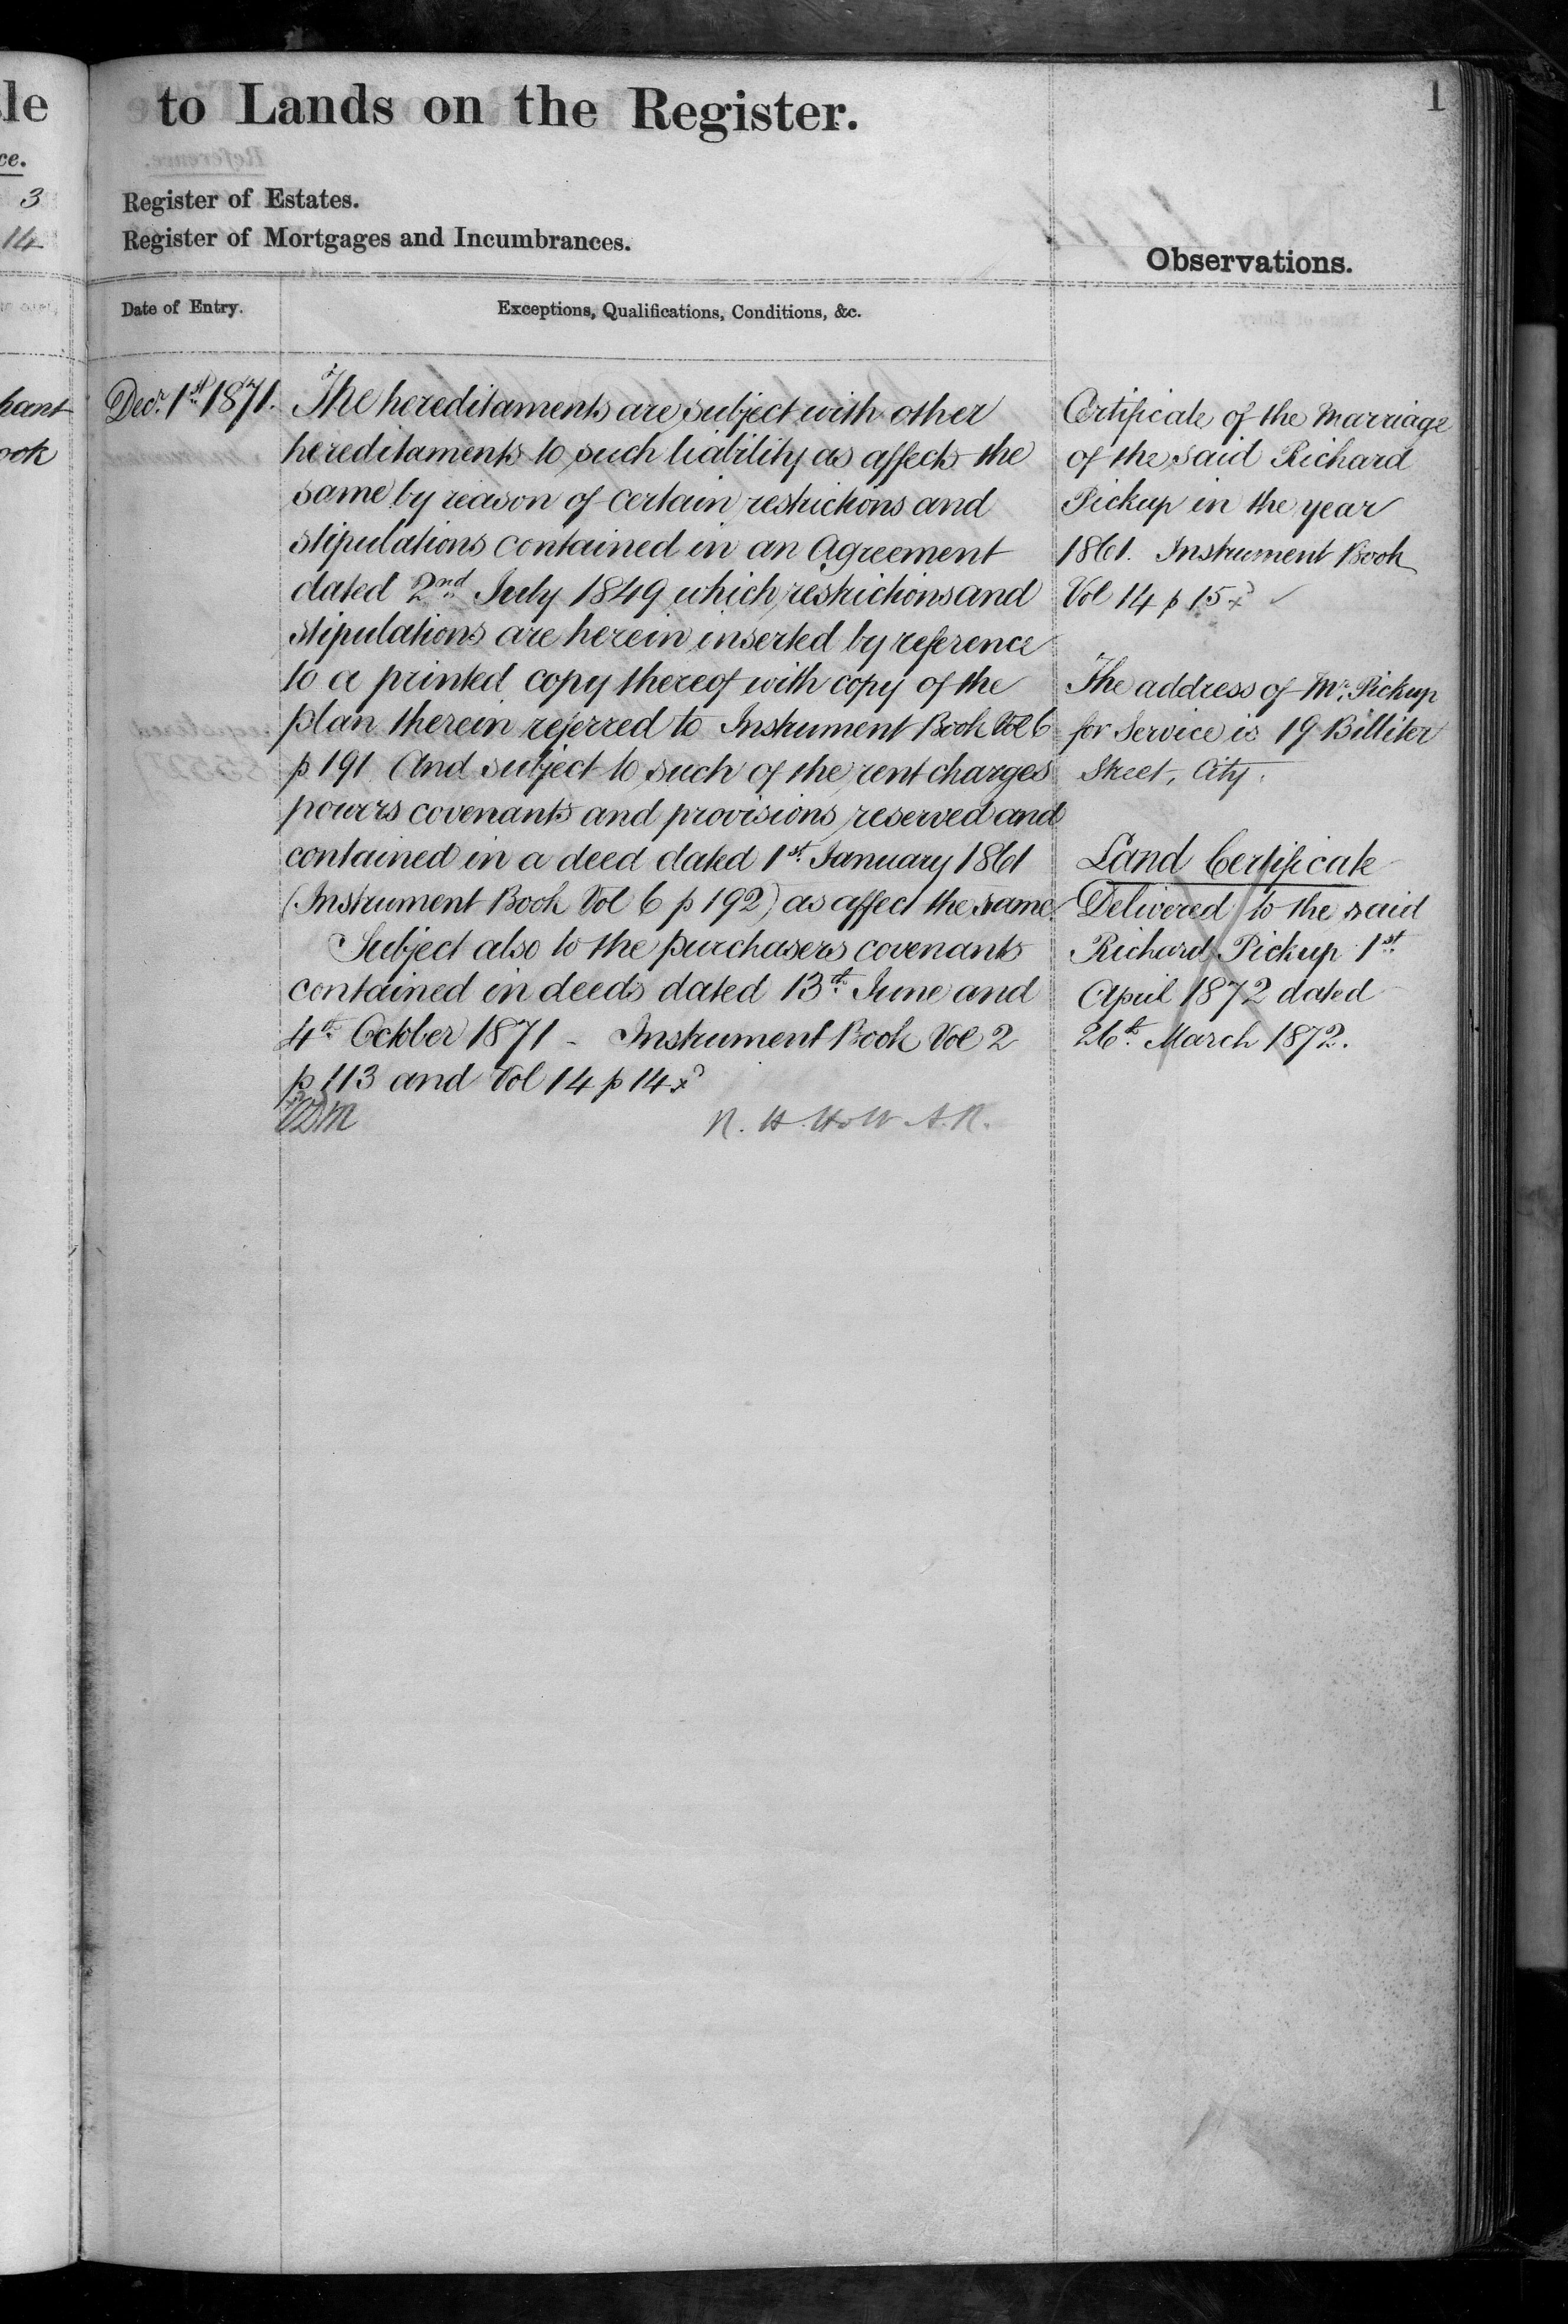 le
ce.
3
14
hant
ook
to Lands on the Register.
1
Register of Estates.
Register of Mortgages and Incumbrances.
Observations.
Date of Entry.
Exceptions, Qualifications, Conditions, &c.
Decr. 1st 1871.
The hereditaments are subject with other
hereditaments to such liability as affects the
same by reason of certain restrictions and
stipulations contained in an Agreement
dated 2nd July 1849 which restrictions and
stipulations are herein inserted by reference
to a printed copy thereof with copy of the
plan therein referred to Instrument Book Vol 6
p 191 And subject to such of the rent charges
powers covenants and provisions reserved and
contained in a deed dated 1st January 1861
(Instrument Book Vol 6 p 192) as affect the same.
Subject also to the purchasers covenants
contained in deeds dated 13th June and
4th October 1871 - Instrument Book Vol 2
p 113 and Vol 14 p 14
R. H. Holt A.R.
Certificate of the Marriage
of the said Richard
Pickup in the year
1861. Instrument Book
Vol 14 p 15
The address of Mr. Pickup
for Service is 19 Billiter
Street, City.
Land Certificate
Delivered to the said
Richard Pickup 1st
April 1872 dated
26th March 1872.